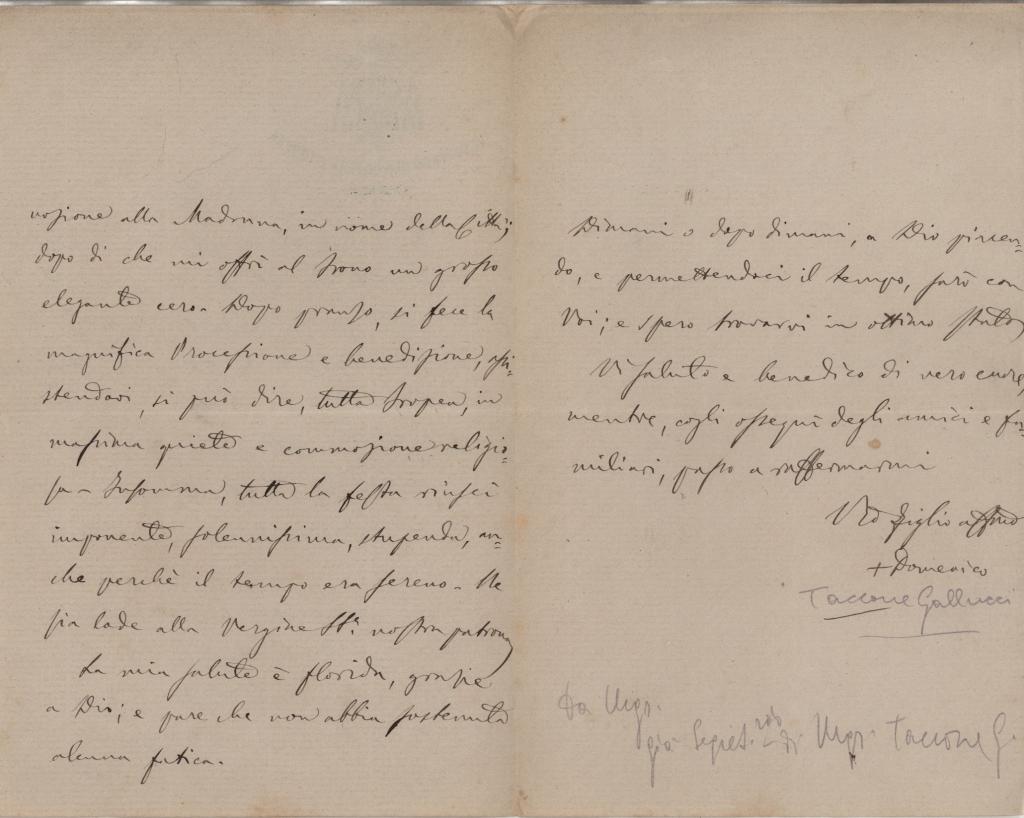 vozione alla Madonna, in nome della Città;
dopo di che mi offrì al Trono un grosso
elegante cero. Dopo pranzo, si fece la
magnifica Processione e benedizione, assi=
stendovi, si può dire, tutta Tropea, in
massima quiete e commozione religio=
sa - Insomma, tutta la festa riuscì
imponente, solennissima, stupenda, an=
che perchè il tempo era sereno. Ne
sia lode alla Vergine SS.ª nostra patrona
La mia salute è florida, grazie
a Dio; e pare che non abbia sostenuta
alcuna fatica.
Dimani o dopo dimani, a Dio piacen=
do, e permettendoci il tempo, sarò con
Voi; e spero trovarvi in ottimo stato,
Vi saluto e benedico di vero cuore,
mentre, cogli ossequi degli amici e fa=
miliari, passo a raffermarmi
Vro figlio affmo
+ Domenico
Taccone Gallucci
Da Mgr.
già Segret.rio di Mgr. Taccone G.